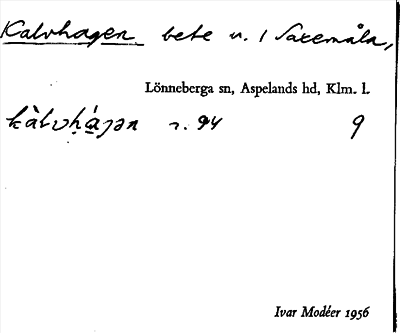 Kalvhagen bete u. / Saxemåla,
Lönneberga sn, Aspelands hd, Klm. l.
kàlvḥá̱gən r. 94 9
Ivar Modéer 1956